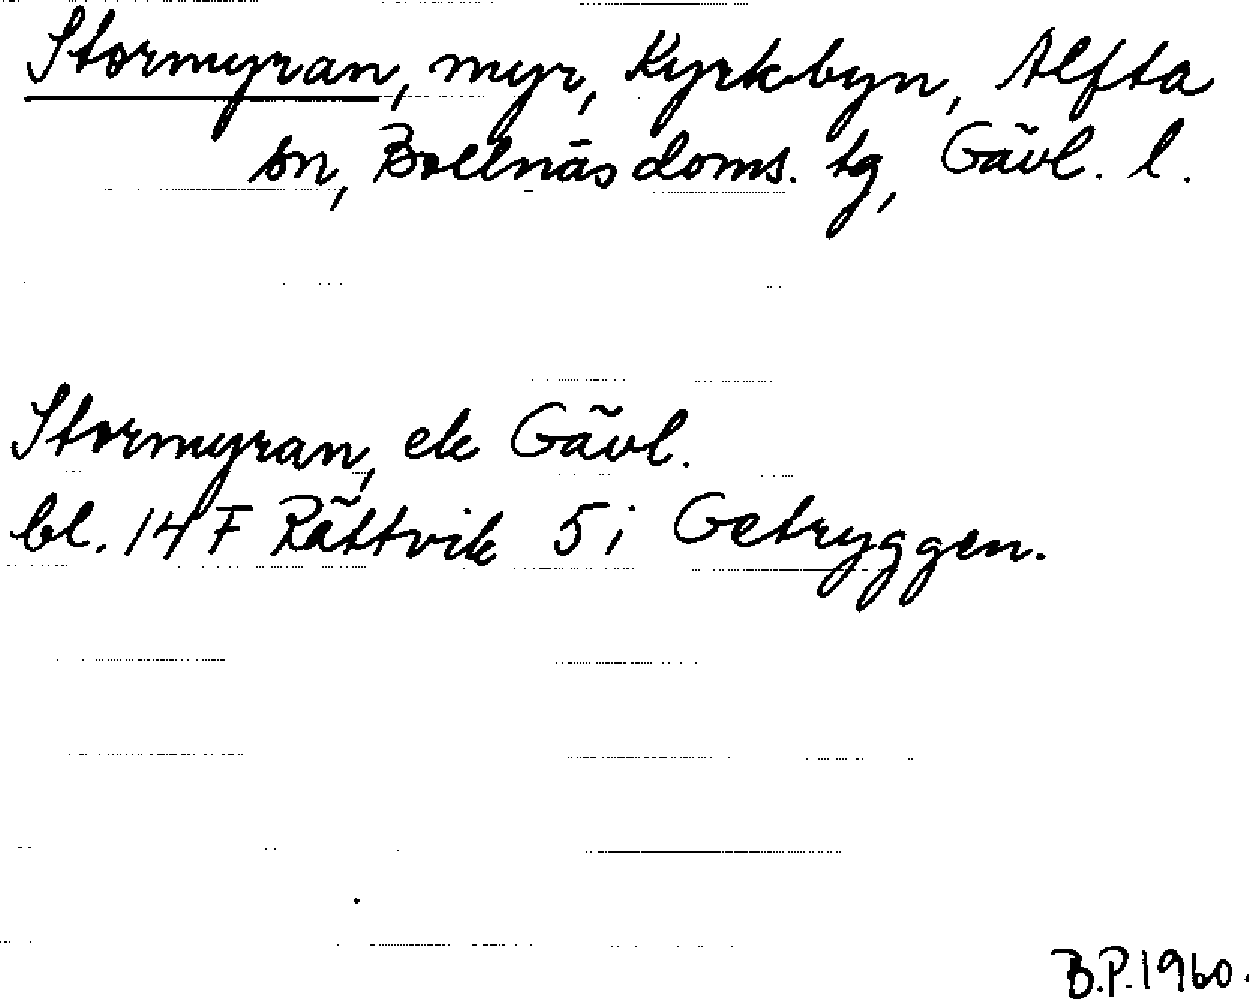 Stormyran, myr, Kyrkbyn, Alfta
sn, Bollnäs doms. tg, Gävl. l.
Stormyran, ek Gävl.
bl. 14 F Rättvik 5 i Getryggen.
B.P. 1960.